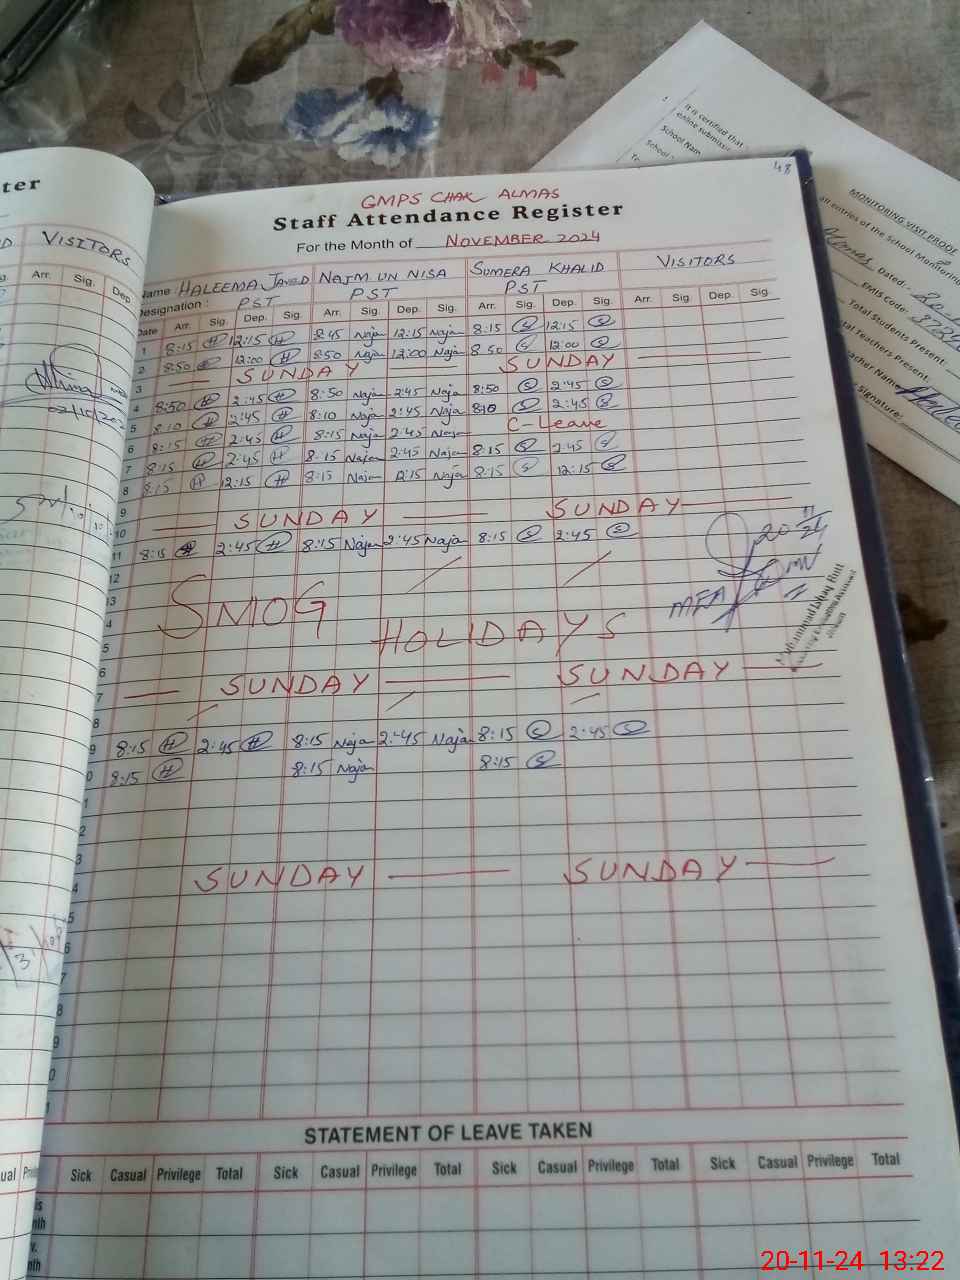 48
GMPS CHAK ALMAS
Staff Attendance Register
For the Month of NOVEMBER 2024
Name HALEEMA JAVED NAJM UN NISA SUMERA KHALID VISITORS
Designation: PST PST PST
Date Arr. Sig. Dep. Sig. Arr. Sig. Dep. Sig. Arr. Sig. Dep. Sig. Arr. Sig. Dep. Sig.
1 8:15 H 12:15 H 8:45 Naja 12:15 Naja 8:15 S 12:15 S
2 8:50 H 12:00 H 8:50 Naja 12:00 Naja 8:50 S 12:00 S
3 SUNDAY SUNDAY
4 8:50 H 2:45 H 8:50 Naja 2:45 Naja 8:50 S 2:45 S
5 8:10 H 2:45 H 8:10 Naja 2:45 Naja 8:10 S 2:45 S
6 8:15 H 2:45 H 8:15 Naja 2:45 Naja C-Leave
7 8:15 H 2:45 H 8:15 Naja 2:45 Naja 8:15 S 2:45 S
8 8:15 H 12:15 H 8:15 Naja 12:15 Naja 8:15 S 12:15 S
9
10 SUNDAY SUNDAY
11 8:15 H 2:45 H 8:15 Naja 2:45 Naja 8:15 S 2:45 S
12
13 SMOG
4 HOLIDAYS
5
6
7 SUNDAY SUNDAY
8
9 8:15 H 2:45 H 8:15 Naja 2:45 Naja 8:15 S 2:45 S
0 8:15 H 8:15 Naja 8:15 S
1
2
3
4 SUNDAY SUNDAY
5
6
7
8
9
0
1
20 11/24
MEA
STATEMENT OF LEAVE TAKEN
Sick Casual Privilege Total Sick Casual Privilege Total Sick Casual Privilege Total Sick Casual Privilege Total
ter
VISITORS
Arr. Sig. Dep
It is certified that
online submiss
School Nam
MONITORING VISIT PROOF
all entries of the School Monitoring
Dated:-
EMIS Code:
Total Students Present:
Teachers Present:
Signature:
20-11-24 13:22